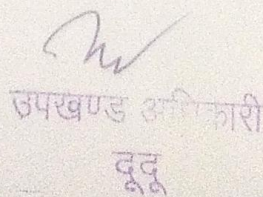 उपखण्ड अधिकारी
दूदू